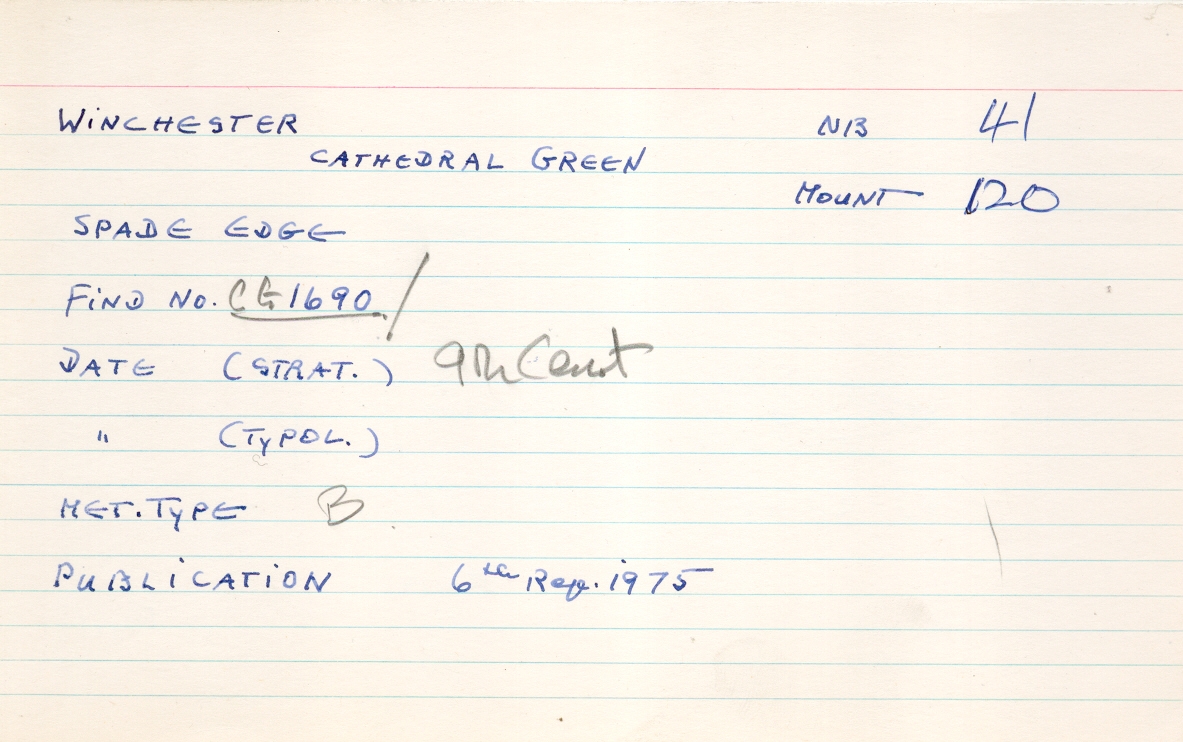 WINCHESTER NB 41
CATHEDRAL GREEN
MOUNT 120
SPADE EDGE
FIND No. CG 1690 /
DATE (STRAT.) 9th Cent
" (TYPOL.)
MET. TYPE B
PUBLICATION 6th Rep. 1975